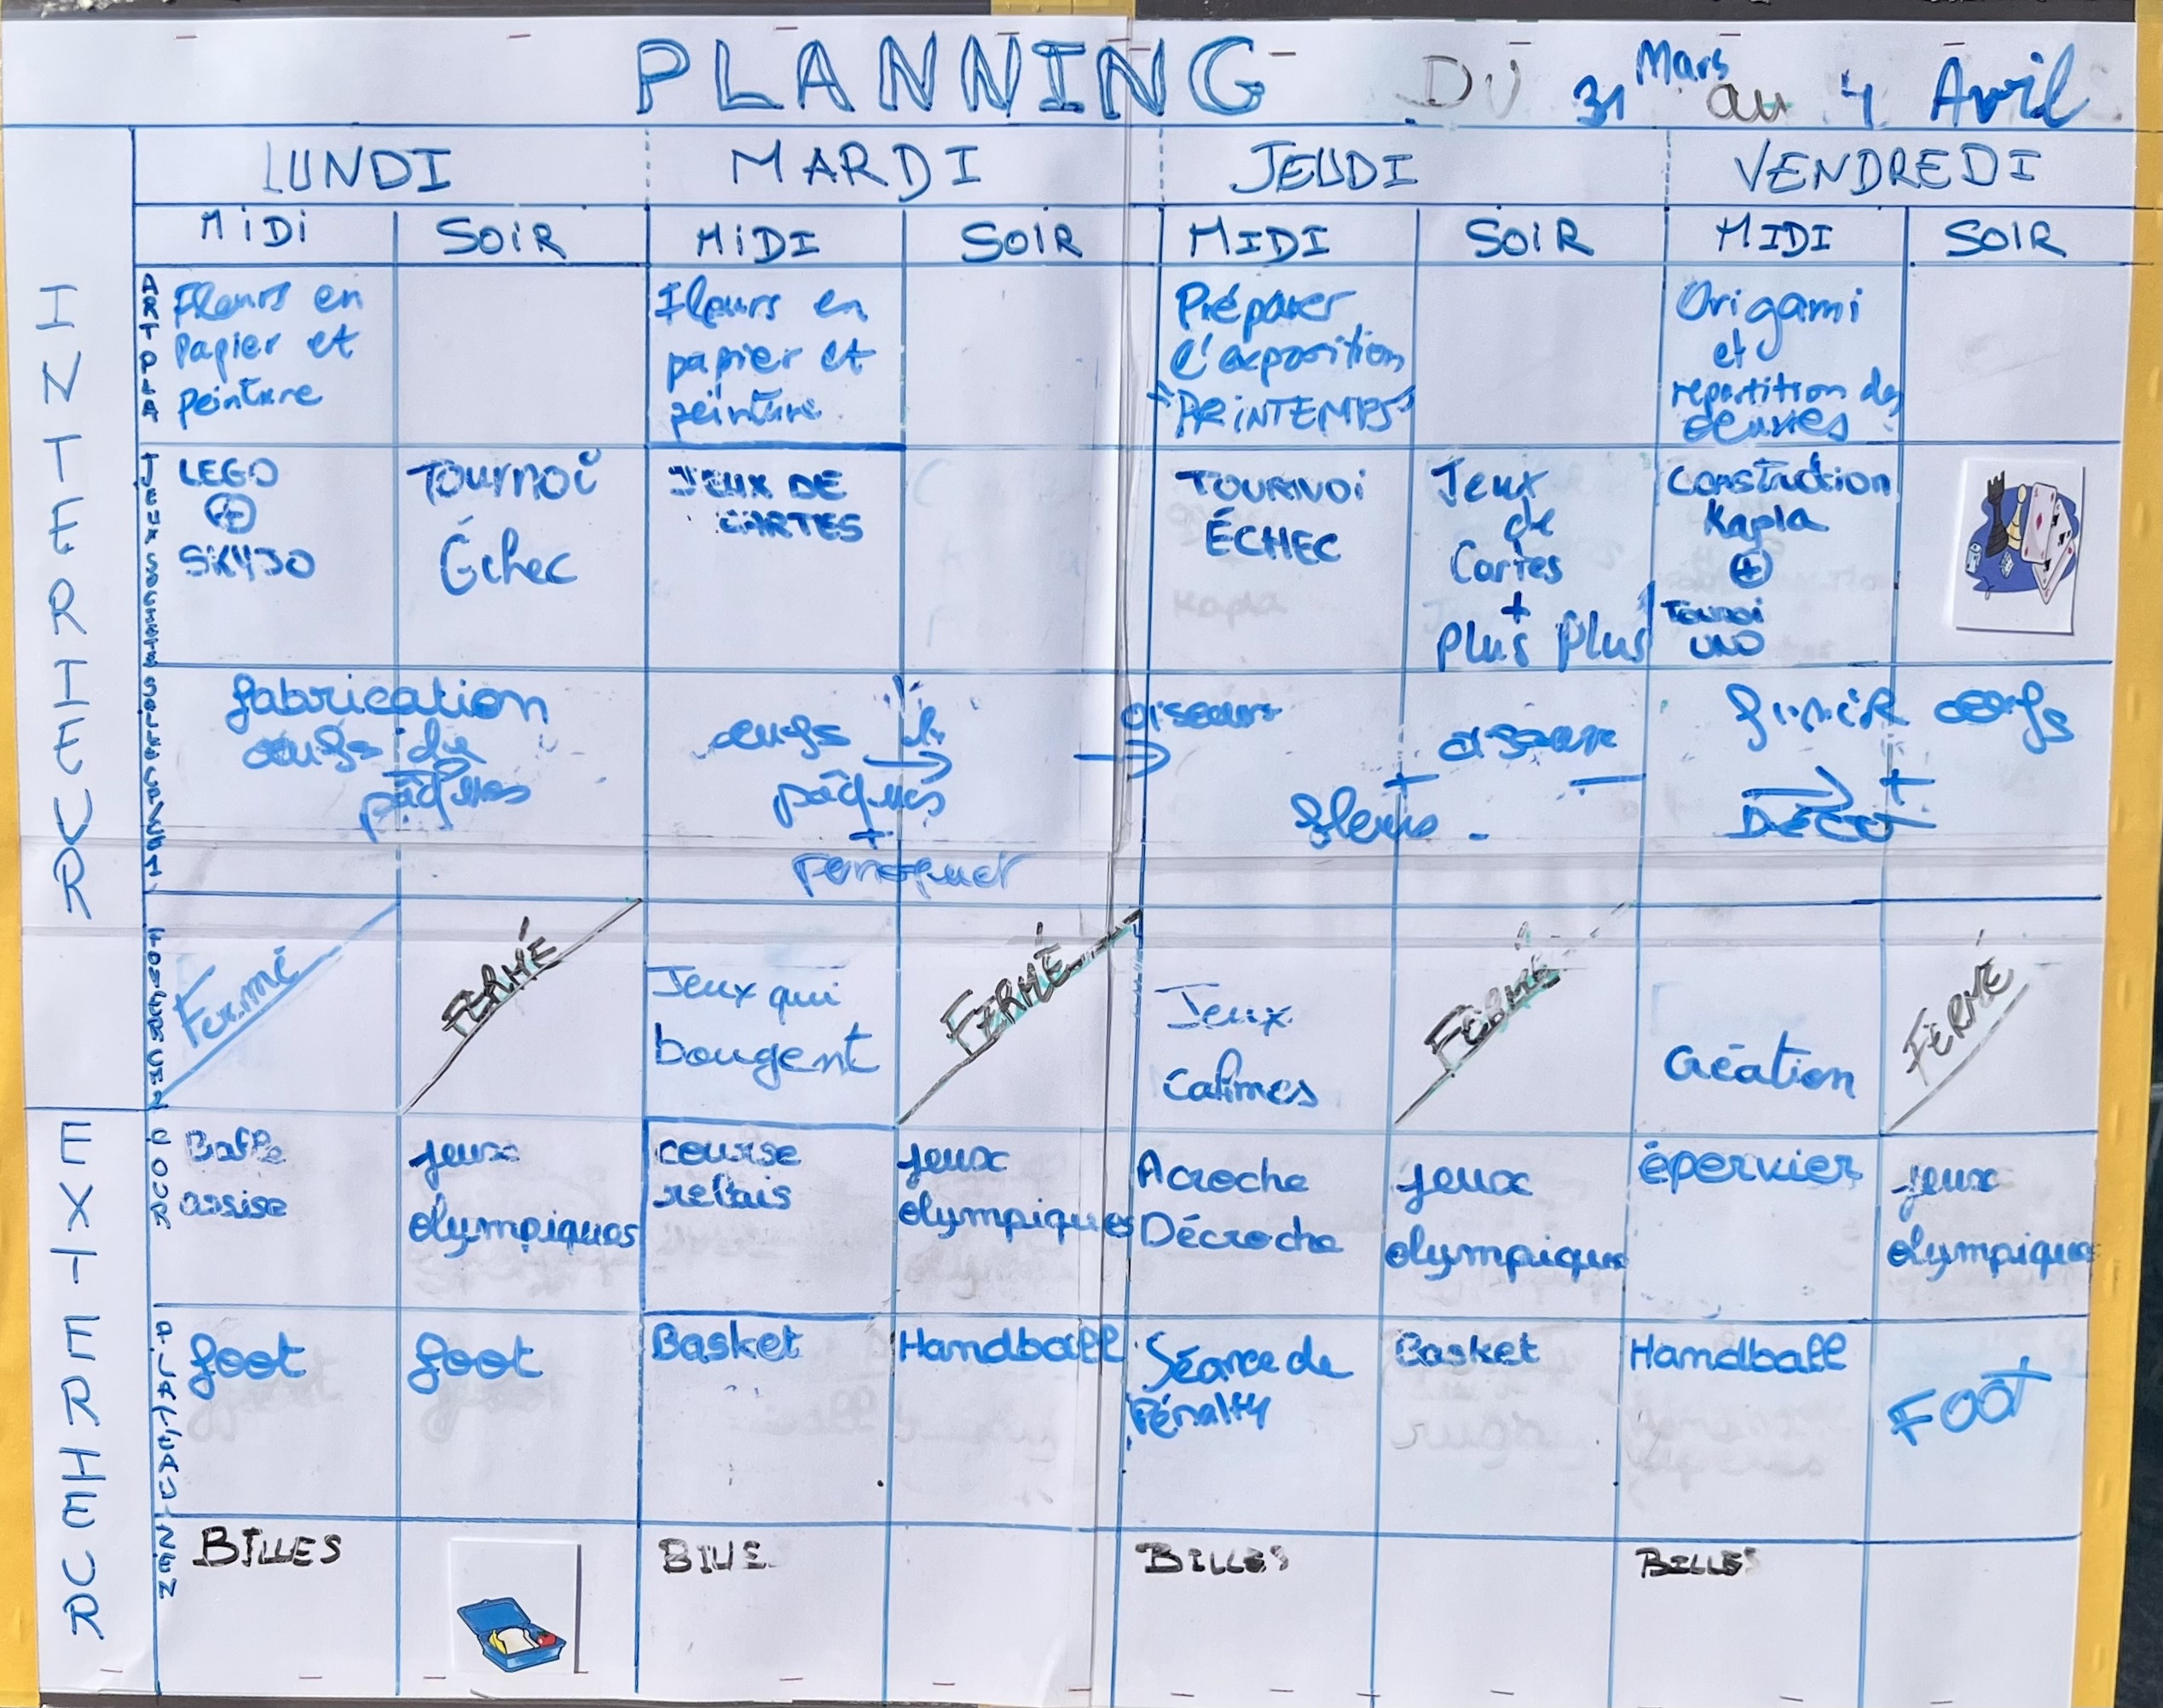 PLANNING DU 31 Mars au 4 Avril
LUNDI MARDI JEUDI VENDREDI
MIDI SOIR MIDI SOIR MIDI SOIR MIDI SOIR
INTERIEUR
ART PLA
Fleurs en
Papier et
peinture
Fleurs en
papier et
peinture
Préparer
l'exposition
"PRINTEMPS"
Origami
et
répartition des
oeuvres
JEUX SOCIETES
LEGO
+
SKYJO
Tournoi
Échec
JEUX DE
CARTES
TOURNOI
ÉCHEC
Jeux
de
Cartes
+
Plus Plus
Construction
Kapla
+
Tounoi
UNO
fabrication
oeufs de
pâques
oeufs de
pâques
+
perroquet
oiseaux
+
fleurs
oiseaux
finir oeufs
+
DÉCO
Fermé
FERMÉ
Jeux qui
bougent
FERMÉ
Jeux
calmes
FERMÉ
Création
FERMÉ
EXTERIEUR
COUR
Balle
assise
jeux
olympiques
course
relais
jeux
olympiques
Acroche
Décroche
jeux
olympique
épervier
jeux
olympique
PLATEAU
foot
foot
Basket
Handball
Séance de
Pénalty
Basket
Handball
FOOT
ZEN
BILLES
BILLE
BILLES
BILLES